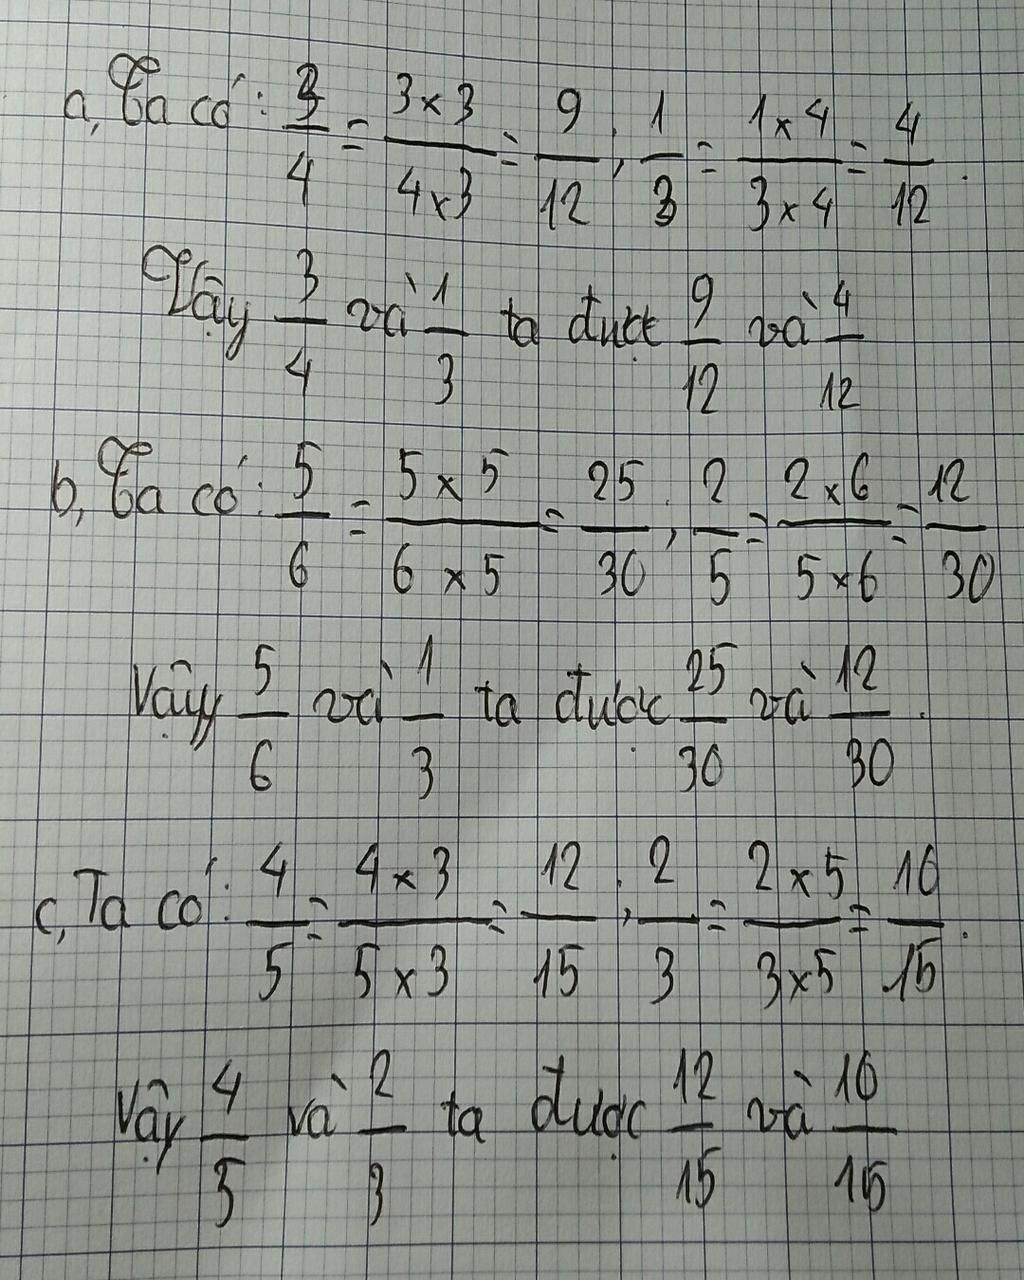 a, Ta có: 3/4 = 3×3/4×3 = 9/12; 1/3 = 1×4/3×4 = 4/12.
Vậy 3/4 và 1/3 ta được 9/12 và 4/12
b, Ta có: 5/6 = 5×5/6×5 = 25/30; 2/5 = 2×6/5×6 = 12/30
Vậy 5/6 và 1/3 ta được 25/30 và 12/30.
c, Ta có: 4/5 = 4×3/5×3 = 12/15; 2/3 = 2×5/3×5 = 10/15.
Vậy 4/5 và 2/3 ta được 12/15 và 10/15